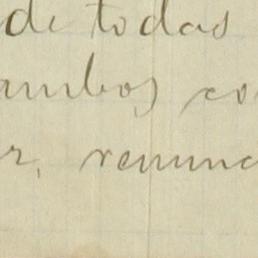 de todas
ambos co
r, renunc